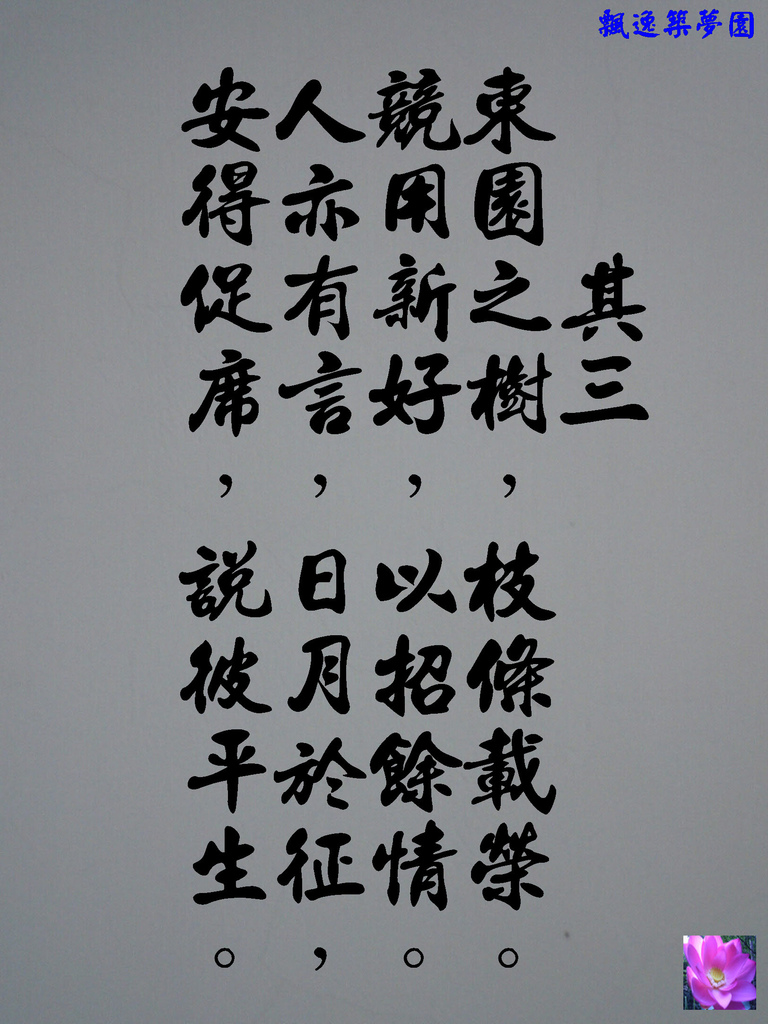 飄逸築夢園
其三
東園之樹，枝條載榮。
競用新好，以招餘情。
人亦有言，日月於征，
安得促席，說彼平生。